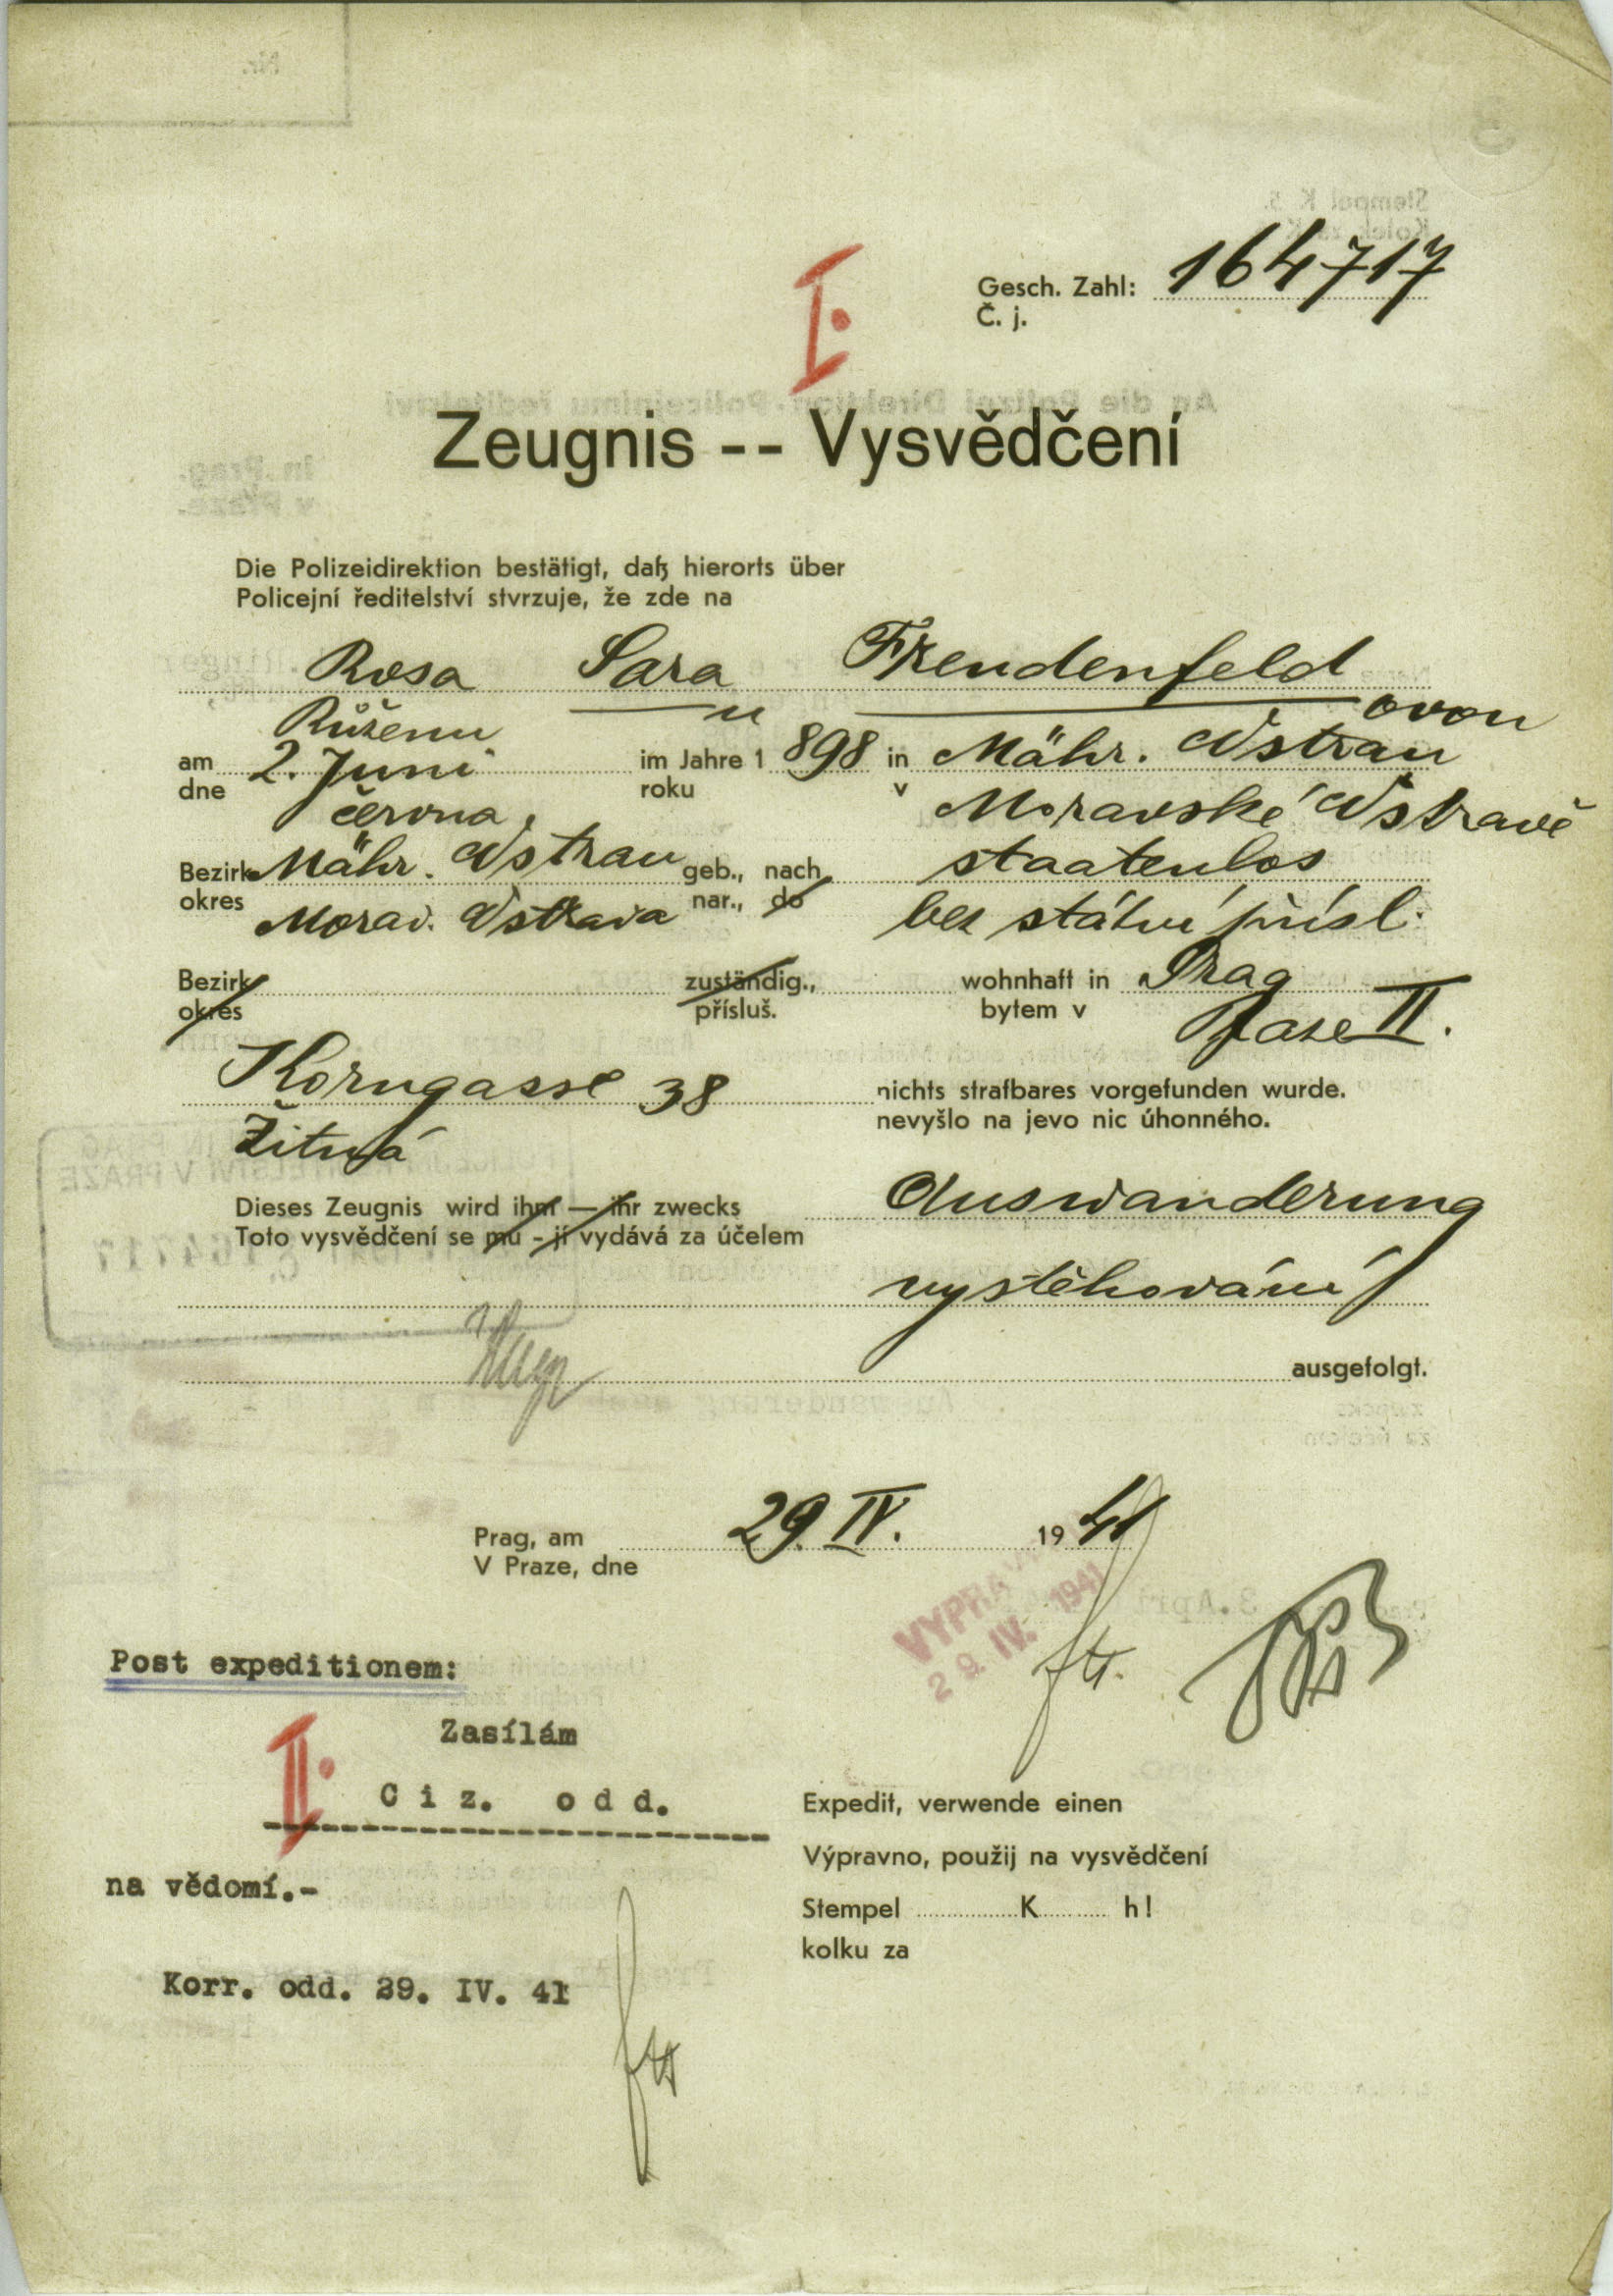 Gesch. Zahl: 164717
Č. j.
I.
Zeugnis -- Vysvědčení
Die Polizeidirektion bestätigt, daß hierorts über
Policejní ředitelství stvrzuje, že zde na
Rosa Sara Freudenfeld
Růženu u ovou
am 2. Juni im Jahre 1 898 in Mähr. Ostrau
dne června roku v Moravské Ostravě
Bezirk Mähr. Ostrau geb., nach staatenlos
okres Morav. Ostrava nar., do bez státní přísl.
Bezirk zuständig., wohnhaft in Prag
okres přísluš. bytem v Praze II.
Korngasse 38 nichts strafbares vorgefunden wurde.
Žitná nevyšlo na jevo nic úhonného.
Dieses Zeugnis wird ihm — ihr zwecks Auswanderung
Toto vysvědčení se mu - jí vydává za účelem
vystěhování
ausgefolgt.
Prag, am 29. IV. 19 41
V Praze, dne
29. IV. 1941
Post expeditionem:
Zasílám
II.
Ciz. odd.
na vědomí.-
Korr. odd. 29. IV. 41
Expedit, verwende einen
Výpravno, použij na vysvědčení
Stempel K h!
kolku za